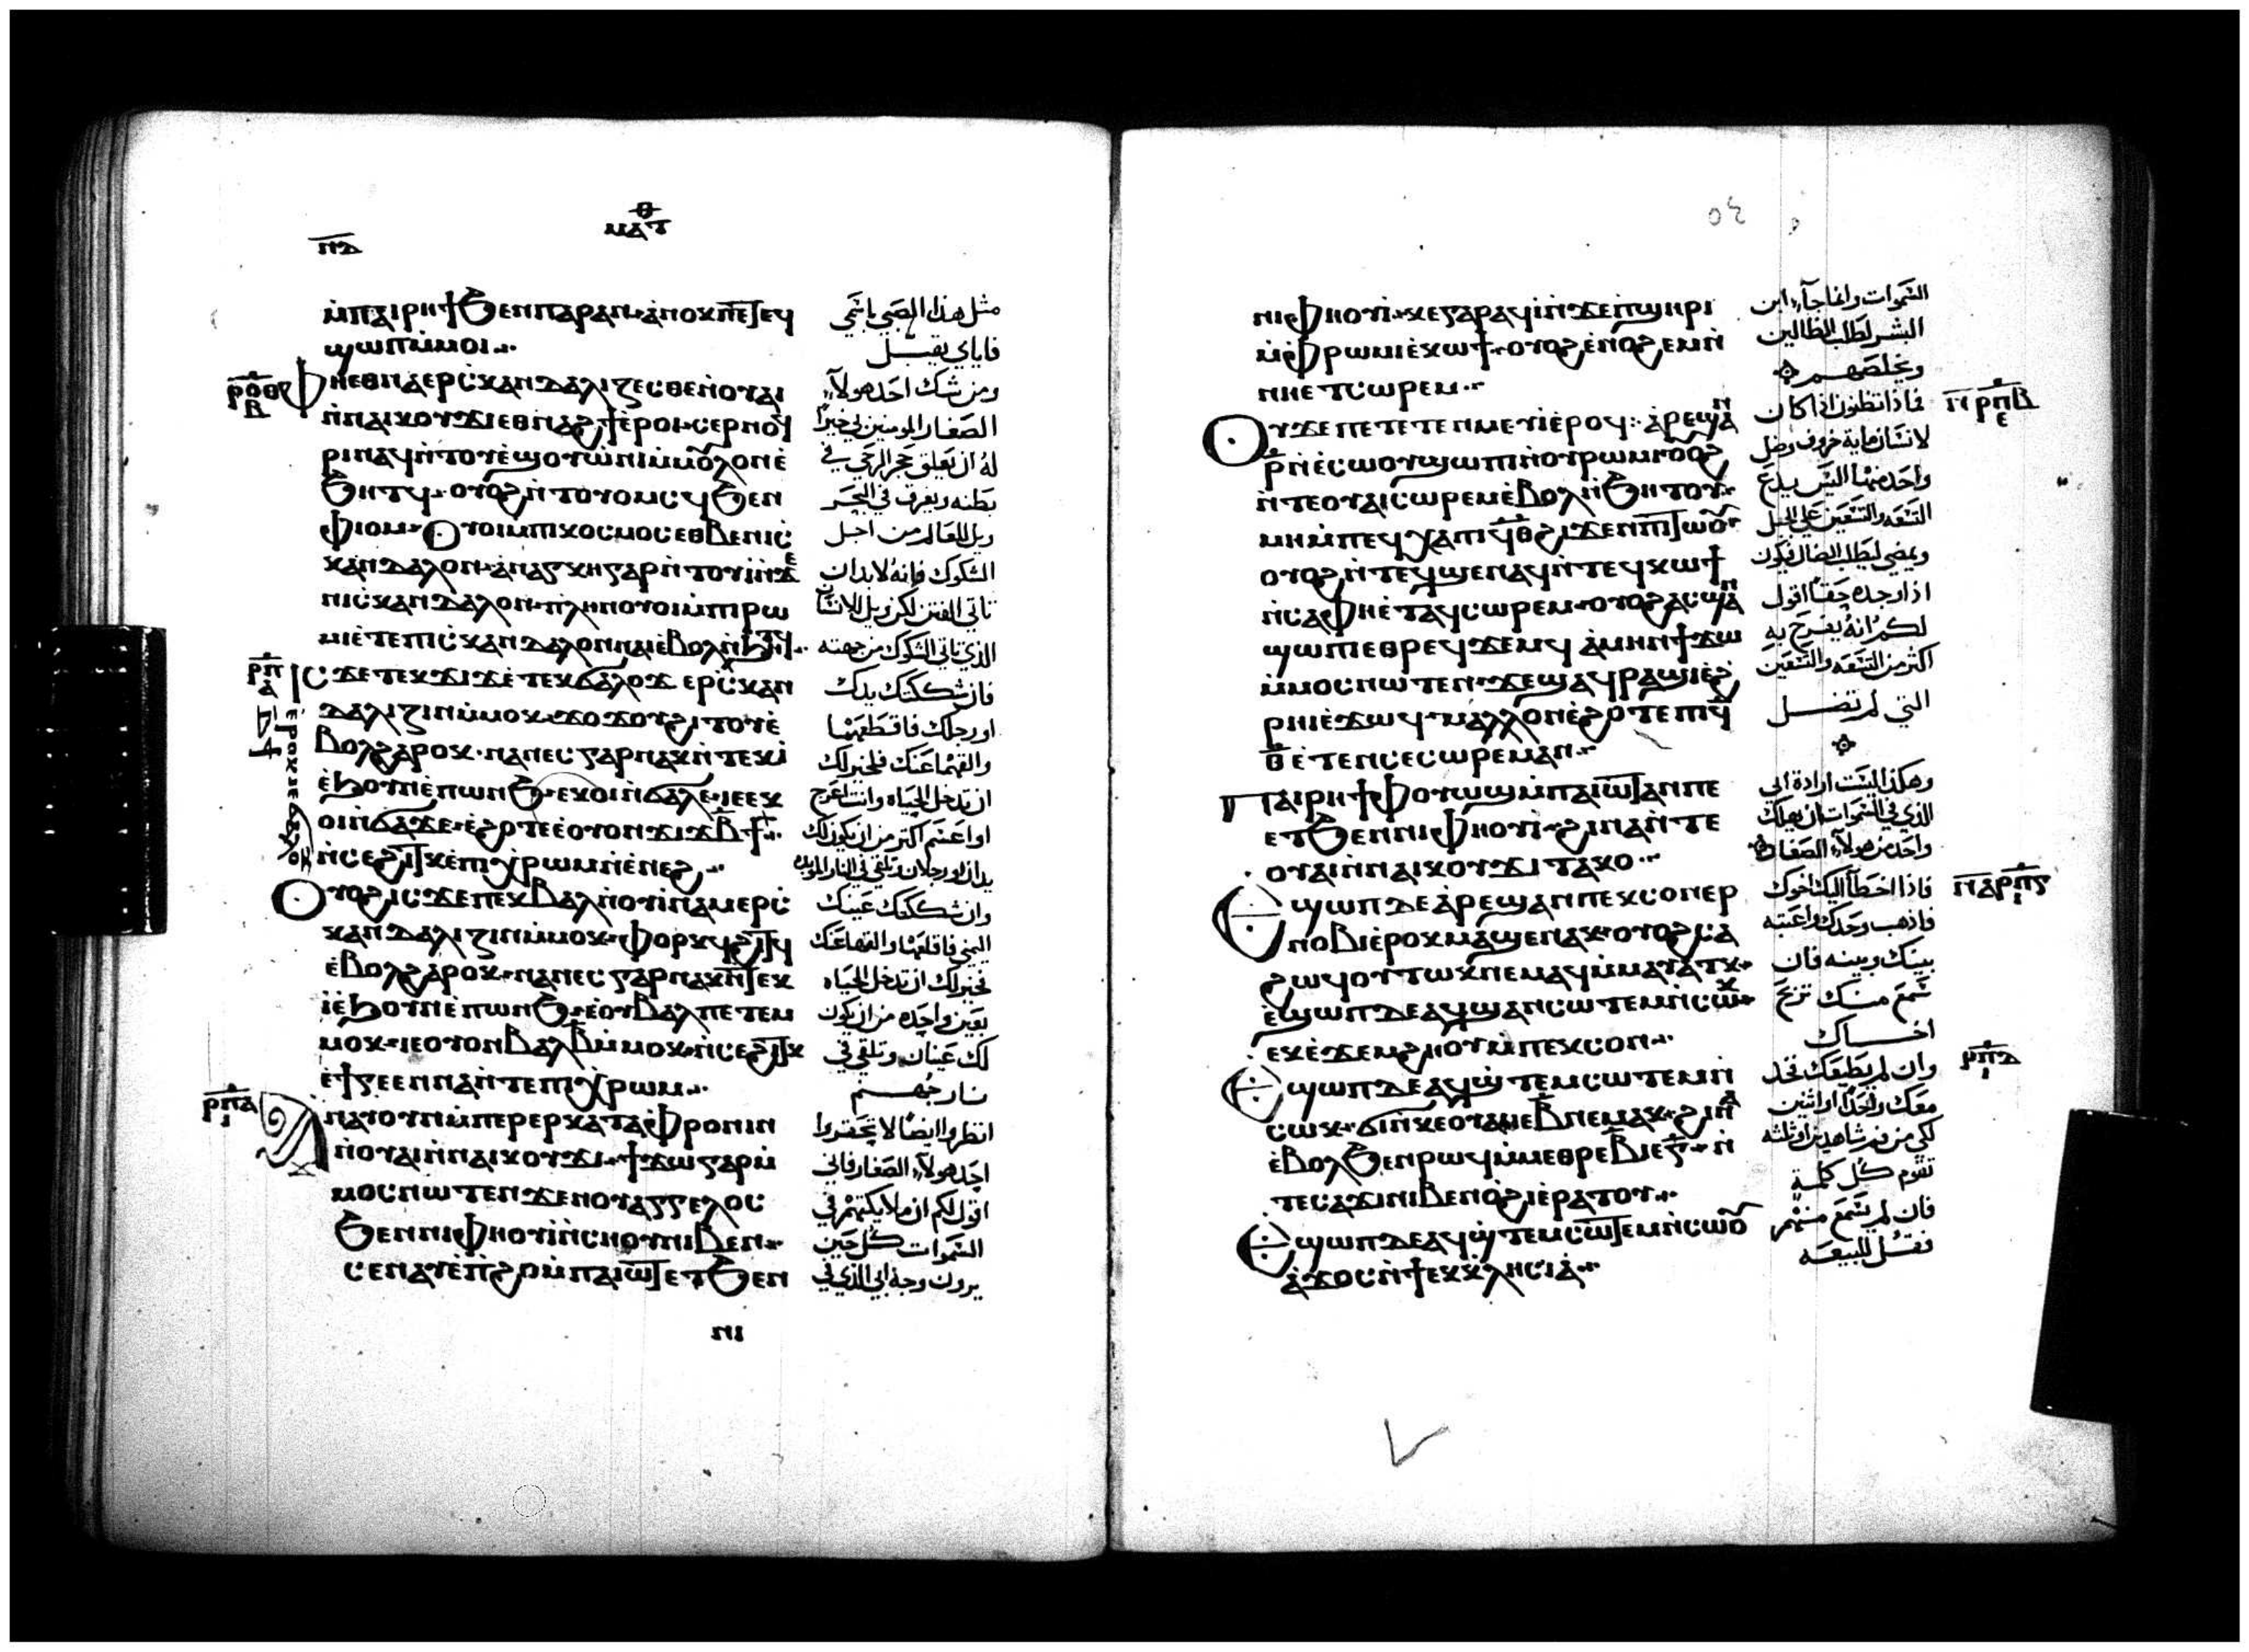 ⲙⲁⲧ
ⲡⲇ
ⲙ̀ⲡⲁⲓⲣⲏϯ ϧⲉⲛ ⲡⲁⲣⲁⲛ ⲁⲛⲟⲕ ⲡⲉⲧⲉϥ
ϣⲱⲡ ⲙ̀ⲙⲟⲓ
ⲫⲏ ⲉⲑⲛⲁⲉⲣⲥ̀ⲕⲁⲛⲇⲁⲗⲓⲍⲉⲥⲑⲉ ⲛ̀ⲟⲩⲁⲓ
ⲛ̀ⲛⲁⲓⲕⲟⲩϫⲓ ⲉⲑⲛⲁϩϯ ⲉ̀ⲣⲟⲓ ⲥⲉⲣⲛⲟϥ
ⲣⲓ ⲛⲁϥ ⲛ̀ⲧⲟⲩⲉ̀ϣ ⲟⲩⲱⲛⲓ ⲙ̀ⲙⲟⲩⲗⲟⲛ ⲉ̀
ϧⲏⲧϥ ⲟⲩⲟϩ ⲛ̀ⲧⲟⲩⲟⲙⲥϥ ϧⲉⲛ
ⲫⲓⲟⲙ ⲟⲩⲟⲓ ⲙ̀ⲡⲓⲕⲟⲥⲙⲟⲥ ⲉⲑⲃⲉ ⲛⲓⲥ̀
ⲕⲁⲛⲇⲁⲗⲟⲛ ⲁ̀ⲛⲁⲅⲕⲏ ⲅⲁⲣ ⲛ̀ⲧⲟⲩⲓ̀ ⲛ̀ϫⲉ
ⲛⲓⲥ̀ⲕⲁⲛⲇⲁⲗⲟⲛ ⲡⲗⲏⲛ ⲟⲩⲟⲓ ⲙ̀ⲡⲓⲣⲱ
ⲙⲓ ⲉ̀ⲧⲉ ⲡⲓⲥ̀ⲕⲁⲛⲇⲁⲗⲟⲛ ⲛⲁⲓ ⲉ̀ⲃⲟⲗ ⲛ̀ϧⲏⲧϥ
ⲓⲥϫⲉ ⲧⲉⲕϫⲓϫ ⲓⲉ ⲧⲉⲕϭⲁⲗⲟϫ ⲉⲣⲥ̀ⲕⲁⲛ
ⲇⲁⲗⲓⲍⲓⲛ ⲙ̀ⲙⲟⲕ ϫⲟϫⲟⲩ ϩⲓⲧⲟⲩ ⲉ̀
ⲃⲟⲗ ϩⲁⲣⲟⲕ ⲛⲁⲛⲉⲥ ⲅⲁⲣ ⲛⲁⲕ ⲛ̀ⲧⲉⲕⲓ̀
ⲉ̀ϧⲟⲩⲛ ⲉ̀ⲡⲱⲛϧ ⲉⲕⲟⲓ ⲛ̀ϭⲁⲗⲉ ⲓⲉ ⲉⲕ
ⲟⲓ ⲛ̀ϭⲁϫⲉ ⲉ̀ϩⲟⲧⲉ ⲉ̀ⲟⲩⲟⲛ ϫⲓϫ ⲃ̅ϯ
ⲛ̀ⲥⲉϩⲓⲧⲕ ⲉ̀ⲡⲓⲭⲣⲱⲙ ⲛ̀ⲉ̀ⲛⲉϩ
ⲟⲩⲟϩ ⲓⲥϫⲉ ⲡⲉⲕⲃⲁⲗ ⲛ̀ⲟⲩⲓⲛⲁⲙ ⲉⲣⲥ̀
ⲕⲁⲛⲇⲁⲗⲓⲍⲓⲛ ⲙ̀ⲙⲟⲕ ⲫⲟⲣⲕϥ ϩⲓⲧϥ
ⲉ̀ⲃⲟⲗ ϩⲁⲣⲟⲕ ⲛⲁⲛⲉⲥ ⲅⲁⲣ ⲛⲁⲕ ⲛ̀ⲧⲉⲕ
ⲓ̀ ⲉ̀ϧⲟⲩⲛ ⲉ̀ⲡⲱⲛϧ ⲉ̀ⲟⲩⲃⲁⲗ ⲡⲉⲧⲉⲙ
ⲙⲟⲕ ⲓⲉ ⲟⲩⲟⲛ ⲃⲁⲗ ⲃ̅ ⲙ̀ⲙⲟⲕ ⲛ̀ⲥⲉϩⲓⲧⲕ
ⲉ̀ϯⲅⲉⲉⲛⲛⲁ ⲛ̀ⲧⲉ ⲡⲓⲭⲣⲱⲙ
ⲁⲛⲁⲩ ⲟⲩⲛ ⲙ̀ⲡⲉⲣⲉⲣⲕⲁⲧⲁⲫⲣⲟⲛⲓⲛ
ⲛ̀ⲟⲩⲁⲓ ⲛ̀ⲛⲁⲓⲕⲟⲩϫⲓ ϯϫⲱ ⲅⲁⲣ ⲙ̀
ⲙⲟⲥ ⲛⲱⲧⲉⲛ ϫⲉ ⲛⲟⲩⲁⲅⲅⲉⲗⲟⲥ
ϧⲉⲛ ⲛⲓⲫⲏⲟⲩⲓ̀ ⲛ̀ⲥⲏⲟⲩ ⲛⲓⲃⲉⲛ
ⲥⲉⲛⲁⲩ ⲉ̀ⲡϩⲟ ⲙ̀ⲡⲁⲓⲱⲧ ⲉⲧϧⲉⲛ
ⲛⲓ
ⲣⲟⲑ
ⲃ
ⲣⲡ
ⲣⲡⲁ
مثل هذا الصبي باسمي
فاياي يقبل
ومن شك احد هولاء
الصغار المومنين بي خيرا
له ان يعلق حجر الرحى في
بطنه ويغرق في البحر
ويل للعالم من اجل
الشكوك فانه لابد ان
تاتي الفتن لكن ويل للانسان
الذي تاتي الشكوك من جهته
فان شككتك يدك
او رجلك فاقطعهما
والقهما عنك فلخير لك
ان تدخل الحياه وانت اعرج
او اعسم اكثر من ان يكون لك
يدان او رجلان وتلقى في النار الموبده
وان شككتك عينك
اليمنى فاقلعها والقها عنك
فخير لك ان تدخل الحياه
بعين واحده من ان يكون
لك عينان وتلقى في
نار جهنم
انظروا ايضا لا تحقروا
احد هولاء الصغار فاني
اقول لكم ان ملايكتهم في
السموات كل حين
يرون وجه ابي الذي في
ⲛⲓⲫⲏⲟⲩⲓ̀ ⲕⲉ ⲅⲁⲣ ⲁϥⲓ̀ ⲛ̀ϫⲉ ⲡ̀ϣⲏⲣⲓ
ⲙ̀ⲫⲣⲱⲙⲓ ⲉ̀ⲕⲱϯ ⲟⲩⲟϩ ⲉ̀ⲛⲟϩⲉⲙ ⲛ̀
ⲛⲏ ⲉⲧⲥⲱⲣⲉⲙ
ⲟⲩ ϫⲉ ⲡⲉⲧⲉⲧⲉⲛⲙⲉⲩⲓ ⲉ̀ⲣⲟϥ ⲁ̀ⲣⲉϣⲁⲛ
ⲣ̅ ⲛ̀ⲉ̀ⲥⲱⲟⲩ ϣⲱⲡⲓ ⲛ̀ⲟⲩⲣⲱⲙⲓ ⲟⲩⲟϩ
ⲛ̀ⲧⲉ ⲟⲩⲁⲓ ⲥⲱⲣⲉⲙ ⲉ̀ⲃⲟⲗ ⲛ̀ϧⲏⲧⲟⲩ
ⲙⲏ ⲙ̀ⲡⲉϥⲭⲁ ⲡⲓϥ̅ⲑ̅ ϩⲓϫⲉⲛ ⲡⲓⲧⲱⲟⲩ
ⲟⲩⲟϩ ⲛ̀ⲧⲉϥϣⲉⲛⲁϥ ⲛ̀ⲧⲉϥⲕⲱϯ
ⲛ̀ⲥⲁ ⲫⲏ ⲉ̀ⲧⲁϥⲥⲱⲣⲉⲙ ⲟⲩⲟϩ ⲁⲥϣⲁⲛ
ϣⲱⲡⲓ ⲉⲑⲣⲉϥϫⲉⲙϥ ⲁ̀ⲙⲏⲛ ϯϫⲱ
ⲙ̀ⲙⲟⲥ ⲛⲱⲧⲉⲛ ϫⲉ ϣⲁϥⲣⲁϣⲓ ⲉ̀ϩ
ⲣⲏⲓ ⲉ̀ϫⲱϥ ⲙⲁⲗⲗⲟⲛ ⲉ̀ϩⲟⲧⲉ ⲡⲓϥ̅
ⲑ̅ ⲉ̀ⲧⲉ ⲛ̀ⲥⲉⲥⲱⲣⲉⲙ ⲁⲛ
ⲡⲁⲓⲣⲏϯ ⲫⲟⲩⲱϣ ⲙ̀ⲡⲁⲓⲱⲧ ⲁⲛ ⲡⲉ
ⲉⲧϧⲉⲛ ⲛⲓⲫⲏⲟⲩⲓ̀ ϩⲓⲛⲁ ⲛ̀ⲧⲉ
ⲟⲩⲁⲓ ⲛ̀ⲛⲁⲓⲕⲟⲩϫⲓ ⲧⲁⲕⲟ
ⲉϣⲱⲡ ⲇⲉ ⲁ̀ⲣⲉϣⲁⲛ ⲡⲉⲕⲥⲟⲛ ⲉⲣ
ⲛⲟⲃⲓ ⲉ̀ⲣⲟⲕ ⲙⲁϣⲉⲛⲁⲕ ⲟⲩⲟϩ ⲥⲁ
ϩⲱϥ ⲟⲩⲧⲱⲕ ⲛⲉⲙⲁϥ ⲙ̀ⲙⲁⲩⲁⲧⲕ
ⲉ̀ϣⲱⲡ ⲇⲉ ⲁϥϣⲁⲛⲥⲱⲧⲉⲙ ⲛ̀ⲥⲱⲕ
ⲉⲕⲉ̀ϫⲉⲙϩⲏⲟⲩ ⲙ̀ⲡⲉⲕⲥⲟⲛ
ⲉϣⲱⲡ ⲇⲉ ⲁϥϣ̀ⲧⲉⲙⲥⲱⲧⲉⲙ ⲛ̀
ⲥⲱⲕ ϭⲓ ⲛ̀ⲕⲉⲟⲩⲁⲓ ⲓⲉ ⲃ̅ ⲛⲉⲙⲁⲕ ϩⲓⲛⲁ
ⲉ̀ⲃⲟⲗ ϧⲉⲛ ⲣⲱϥ ⲙ̀ⲙⲉⲑⲣⲉ ⲃ̅ ⲓⲉ ⲅ̅ ⲛ̀
ⲧⲉ ⲥⲁϫⲓ ⲛⲓⲃⲉⲛ ⲟ̀ϩⲓ ⲉ̀ⲣⲁⲧⲟⲩ
ⲉϣⲱⲡ ⲇⲉ ⲁϥϣ̀ⲧⲉⲙⲥⲱⲧⲉⲙ ⲛ̀ⲥⲱⲟⲩ
ⲁ̀ϫⲟⲥ ⲛ̀ϯⲉⲕⲕⲗⲏⲥⲓⲁ̀
السموات وانما جاء ابن
البشر لطلب الظالين
ويخلصهم
فماذا تظنون اذا كان
لانسان ماية خروف وضل
واحد منها اليس يدع
التسعه والتسعين على الجبل
ويمضي ليطلب الضال فيكون
اذا وجده حقا اقول
لكم انه يفرح به
اكثر من التسعه والتسعين
التي لم تضل
وهكذا ليست ارادة ابي
الذي في السموات ان يهلك
واحد من هولاء الصغار
فاذا اخطأ اليك اخوك
فاذهب وحدك واعتبه
بينك وبينه فان
سمع منك تربح
اخاك
وان لم يطيعك فخذ
معك واحدا او اثنين
لكي من فم شاهدين او ثلثه
تقوم كل كلمة
فان لم يسمع منهم
فقل للبيعه